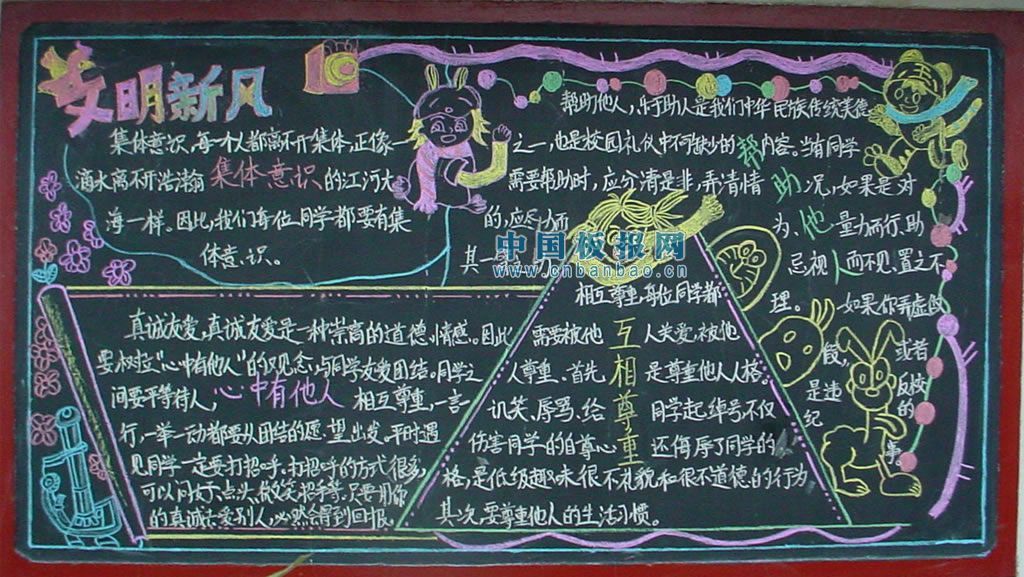 文明新风
集体意识,每一个人都离不开集体,正像一
滴水离不开浩瀚 集体意识 的江河大
海一样。因此,我们每位同学都要有集
体意识。
帮助他人,乐于助人是我们中华民族传统美德
之一,也是校园礼仪中不可缺少的 内容。当有同学
需要帮助时,应分清是非,弄清情 助 况,如果是对
的,应尽力而 为、他 量力而行、助
其一 忌,视 人 而不见、置之不
理。 如果你弄虚作
假, 或者
是违 反校
纪 的
事。
中国板报网
www.cnbanbao.cn
真诚友爱,真诚友爱是一种崇高的道德、情感。因此
要树立“心中有他人”的观念,与同学友爱团结。同学之
间要平等待人, 心中有他人 相互尊重,一言一
行,一举一动都要从团结的愿望出发。平时遇
见同学一定要打招呼、打招呼的方式很多,
可以问好、点头、微笑、招手等,只要用你
的真诚去爱别人,必然会得到回报。
相互尊重,每位同学都
需要被他 互 人关爱,被他
人尊重、首先 相 是尊重他人人格。
讥笑、辱骂、给 尊 同学起绰号不仅
伤害同学的自尊心 重 还侮辱了同学的人
格,是低级趣味很不礼貌和很不道德的行为,
其次,要尊重他人的生活习惯。